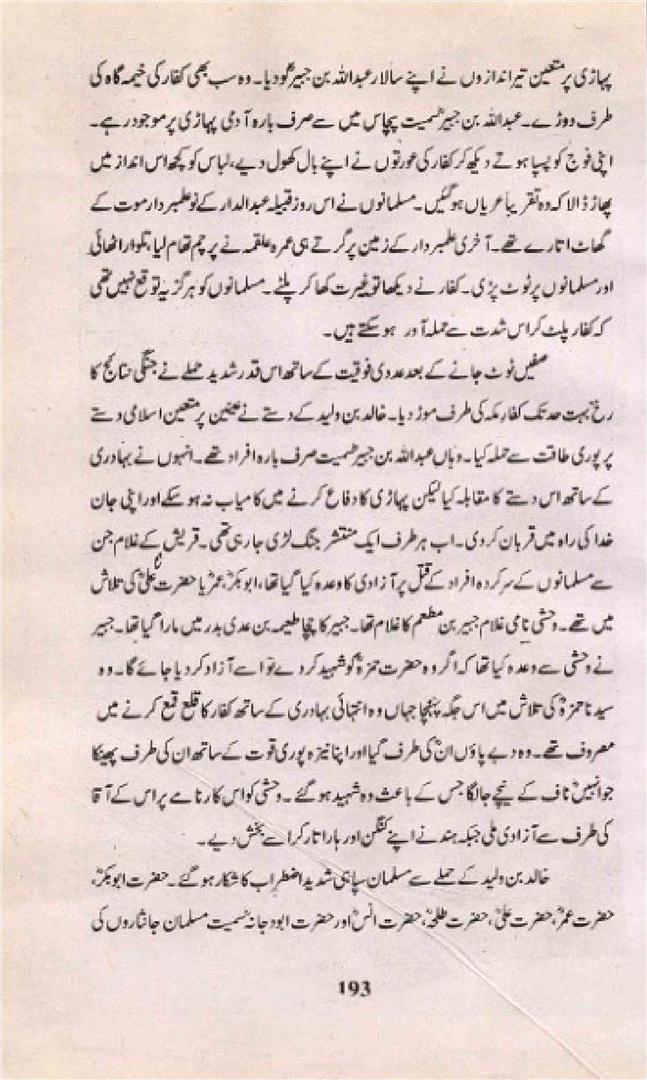 پہاڑی پر متعین تیر اندازوں نے اپنے سالار عبداللہ بن جبیرؓ کو دیا۔ وہ سب بھی کفار کی خیمہ گاہ کی
طرف دوڑے۔ عبداللہ بن جبیرؓ سمیت پچاس میں سے صرف بارہ آدمی پہاڑی پر موجود رہے۔
اپنی فوج کو پسپا ہوتے دیکھ کر کفار کی عورتوں نے اپنے بال کھول دیے، لباس کو کچھ اس انداز میں
پھاڑ ڈالا کہ وہ تقریباً عریاں ہو گئیں۔ مسلمانوں نے اس روز قبیلہ عبدالدار کے نو علمبردار موت کے
گھاٹ اتارے تھے۔ آخری علمبردار کے زمین پر گرتے ہی عمرہ علقمہ نے پرچم تھام لیا، تلوار اٹھائی
اور مسلمانوں پر ٹوٹ پڑی۔ کفار نے دیکھا تو غیرت کھا کر پلٹے۔ مسلمانوں کو ہرگز یہ توقع نہیں تھی
کہ کفار پلٹ کر اس شدت سے حملہ آور ہو سکتے ہیں۔
صفیں ٹوٹ جانے کے بعد عددی فوقیت کے ساتھ اس قدر شدید حملے نے جنگی نتائج کا
رخ بہت حد تک کفار مکہ کی طرف موڑ دیا۔ خالد بن ولید کے دستے نے عینین پر متعین اسلامی دستے
پر پوری طاقت سے حملہ کیا۔ وہاں عبداللہ بن جبیرؓ سمیت صرف بارہ افراد تھے۔ انہوں نے بہادری
کے ساتھ اس دستے کا مقابلہ کیا لیکن پہاڑی کا دفاع کرنے میں کامیاب نہ ہو سکے اور اپنی جان
خدا کی راہ میں قربان کر دی۔ اب ہر طرف ایک منتشر جنگ لڑی جا رہی تھی۔ قریش کے غلام جن
سے مسلمانوں کے سرکردہ افراد کے قتل پر آزادی کا وعدہ کیا گیا تھا، ابوبکرؓ، عمرؓ یا حضرت علیؓ کی تلاش
میں تھے۔ وحشی نامی غلام جبیر بن مطعم کا غلام تھا۔ جبیر کا چچا طیعمہ بن عدی بدر میں مارا گیا تھا۔ جبیر
نے وحشی سے وعدہ کیا تھا کہ اگر وہ حضرت حمزہؓ کو شہید کر دے تو اسے آزاد کر دیا جائے گا۔ وہ
سیدنا حمزہؓ کی تلاش میں اس جگہ پہنچا جہاں وہ انتہائی بہادری کے ساتھ کفار کا قلع قمع کرنے میں
مصروف تھے۔ وہ دبے پاؤں انؓ کی طرف گیا اور اپنا نیزہ پوری قوت کے ساتھ ان کی طرف پھینکا
جو انہیںؓ ناف کے نیچے جا لگا جس کے باعث وہ شہید ہو گئے۔ وحشی کو اس کارنامے پر اس کے آقا
کی طرف سے آزادی ملی جبکہ ہند نے اپنے کنگن اور ہار اتار کر اسے بخش دیے۔
خالد بن ولید کے حملے سے مسلمان سپاہی شدید اضطراب کا شکار ہو گئے۔ حضرت ابوبکرؓ،
حضرت عمرؓ، حضرت علیؓ، حضرت طلحہؓ، حضرت انسؓ اور حضرت ابودجانہؓ سمیت مسلمان جانثاروں کی
193